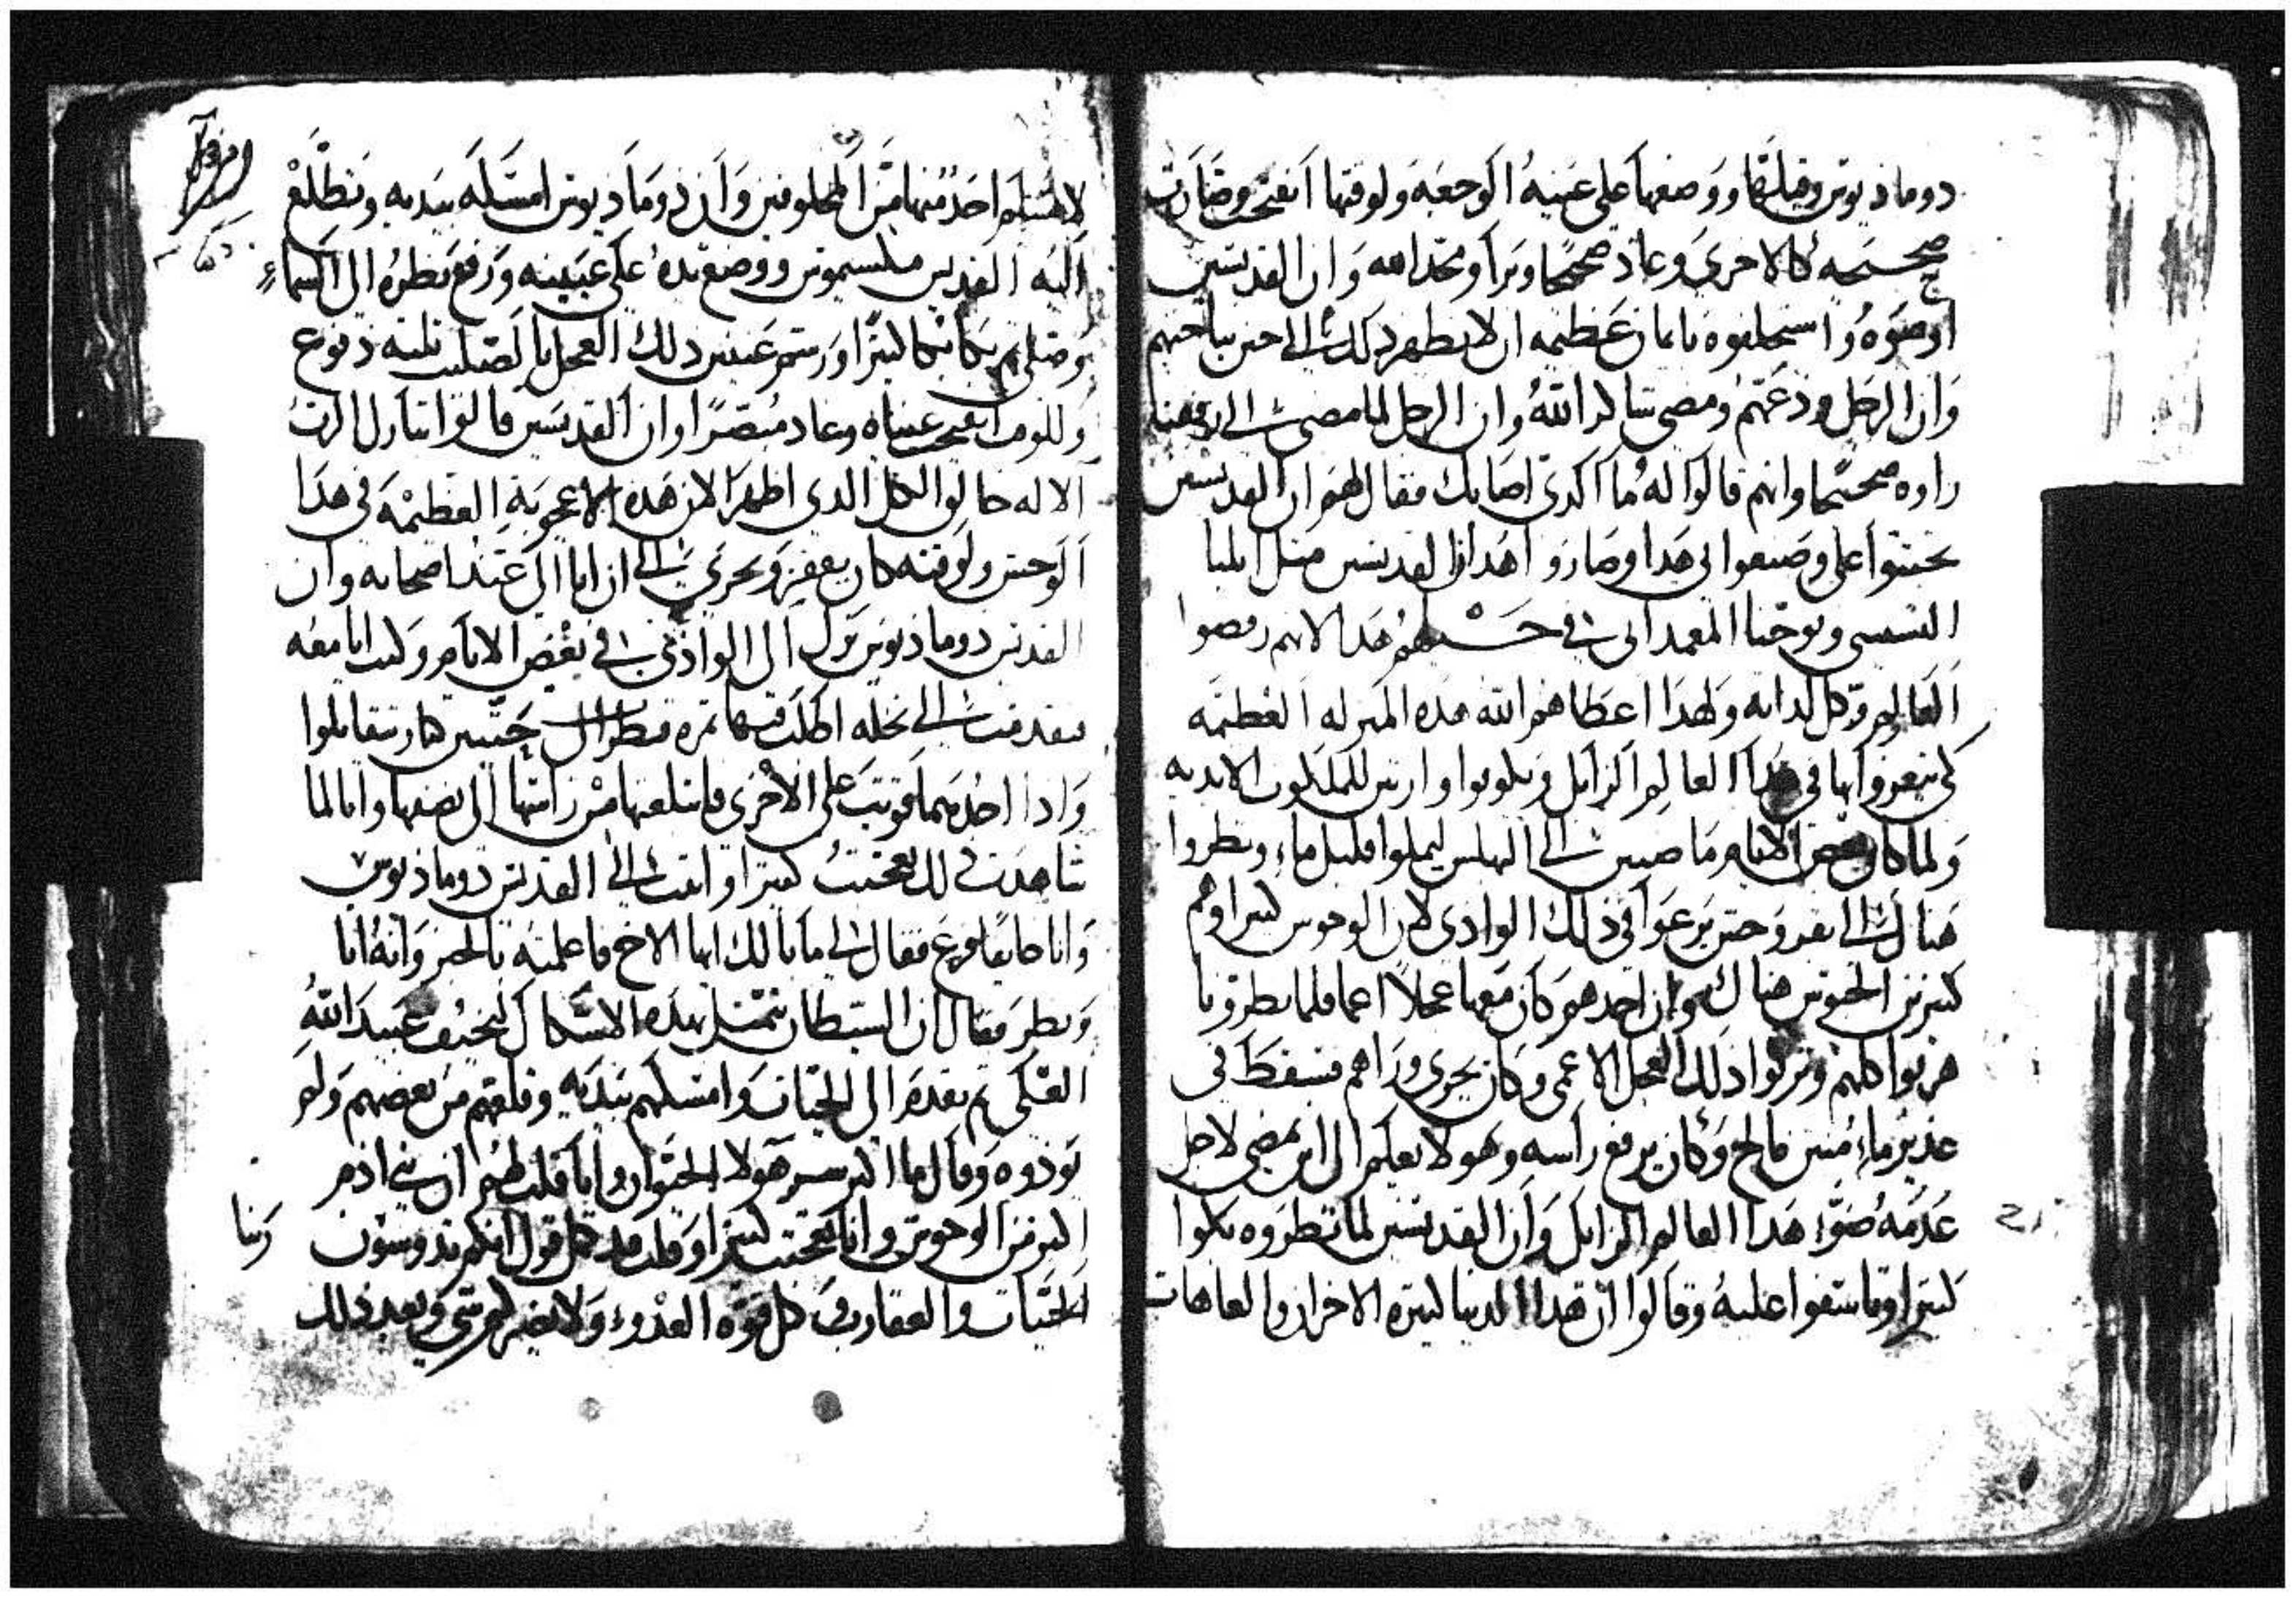 دوماديوس وقبلها ووضعها على عينيه الوجعه ولوقتها انفتحت وصارت
صحيحه كالاخرى وعاد صحيحا وبرا ومجد الله وان القديسين
اوصوه واستحلفوه بايمان عظيمه ان لا يظهر ذلك الى حين نياحتهم
وان الرجل ودعهم ومضى شاكرا لله وان الرجل لما مضى الى رفقته
راوه صحيحا وانهم قالوا له ما الدي اصابك فقال لهم ان القديسين
تحننوا على وصنعوا بى هدا وصاروا هدان القديسين مثل ايليا
التسبى ويوحنا المعمدانى فى هدا لانهم رفضوا
العالم وكل لداته ولهدا اعطاهم الله هده المنزله العظيمه
كى يتعروا بها فى هدا العالم الزايل ويكونوا وارتين للملكوت الابديه
ولما كان بعض الايام ماضيين الى ليملوا قليل ماء ونظروا
هناك الى بقر وحش يرعوا فى ذلك الوادى لان الوحوش كتيرا وهم
كتيرين الحبوس هناك وان احدهم كان معها عجلا اعما فلما نظرونا
هربوا كلهم وتركوا دلك العجل الاعمى وكان يجرى وراهم فسقط فى
غدير ماء منتن مالح وكان يرفع راسه وهو لا يعلم الى اين يمضى لاجل
عدمه ضوء هدا العالم الزايل وان القديسين لما نظروه بكوا
كتيرا وتاسفوا عليه وقالوا ان هدا الدنيا كتيره الاحزان والعاهات
لا يسلم احد منها من المخلوقين وان دوماديوس امسكه بيديه وتطلع
اليه القديس مكسيموس ووضع يده على عينيه ورفع نظره الى السماء
وصلى تم بكا بكا كتيرا ورشم عينين دلك العجل بالصليب تلته دفوع
وللوقت انفتحت عيناه وعاد مبصرا وان القديسين قالوا تبارك الرب
الاله خالق الكل الدى اظهر الان هده الاعجوبه العظيمه فى هدا
الوحش ولوقته كان يقفز ويجرى الى ان اتا الى عند اصحابه وان
القديس دوماديوس نزل الى الوادى فى بعض الايام وكنت انا معه
فتقدمت الى نخله اطلب فيها تمره فنظرت الى حيتين كبار يتقاتلوا
وادا احدهما قويت على الاخرى فابتلعتها من راسها الى نصفها وانا لما
شاهدت دلك تعجبت كتيرا واتيت الى القديس دوماديوس
وانا خايف فزع فقال لى ما بالك ايها الاخ فاعلمته بالخبر وانه اتا
ونظر فقال ان الشيطان يتمتل بهده الاشكال ليخيف عبيد الله
العلى تم تقدم الى الحيات وامسكهم بيديه وخلصهم من بعضهم ولم
يودوه وقال ما اكتر سم هولا الحيوان وانا قلت لهم ان بنى ادم
اكتر من الوحوش وانا تعجبت كتيرا وقلت قد كمل قول انكم تدوسون
الحيات والعقارب وكل قوه العدو ولا يضركم شى وبعد ذلك
ربنا